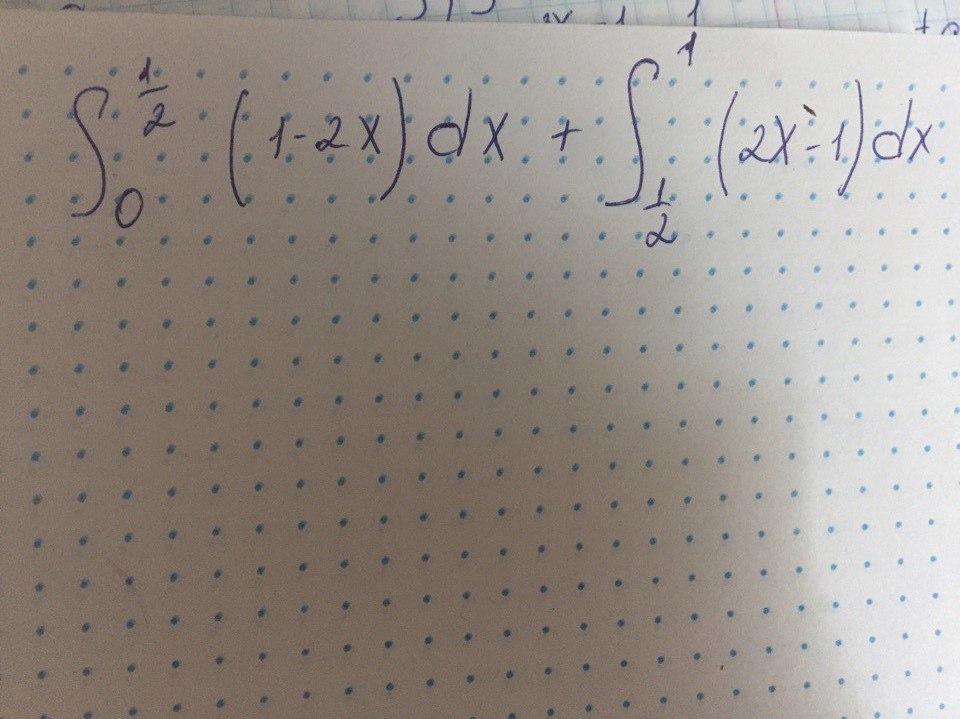 ∫₀^½ (1-2x) dx + ∫_½^1 (2x-1) dx